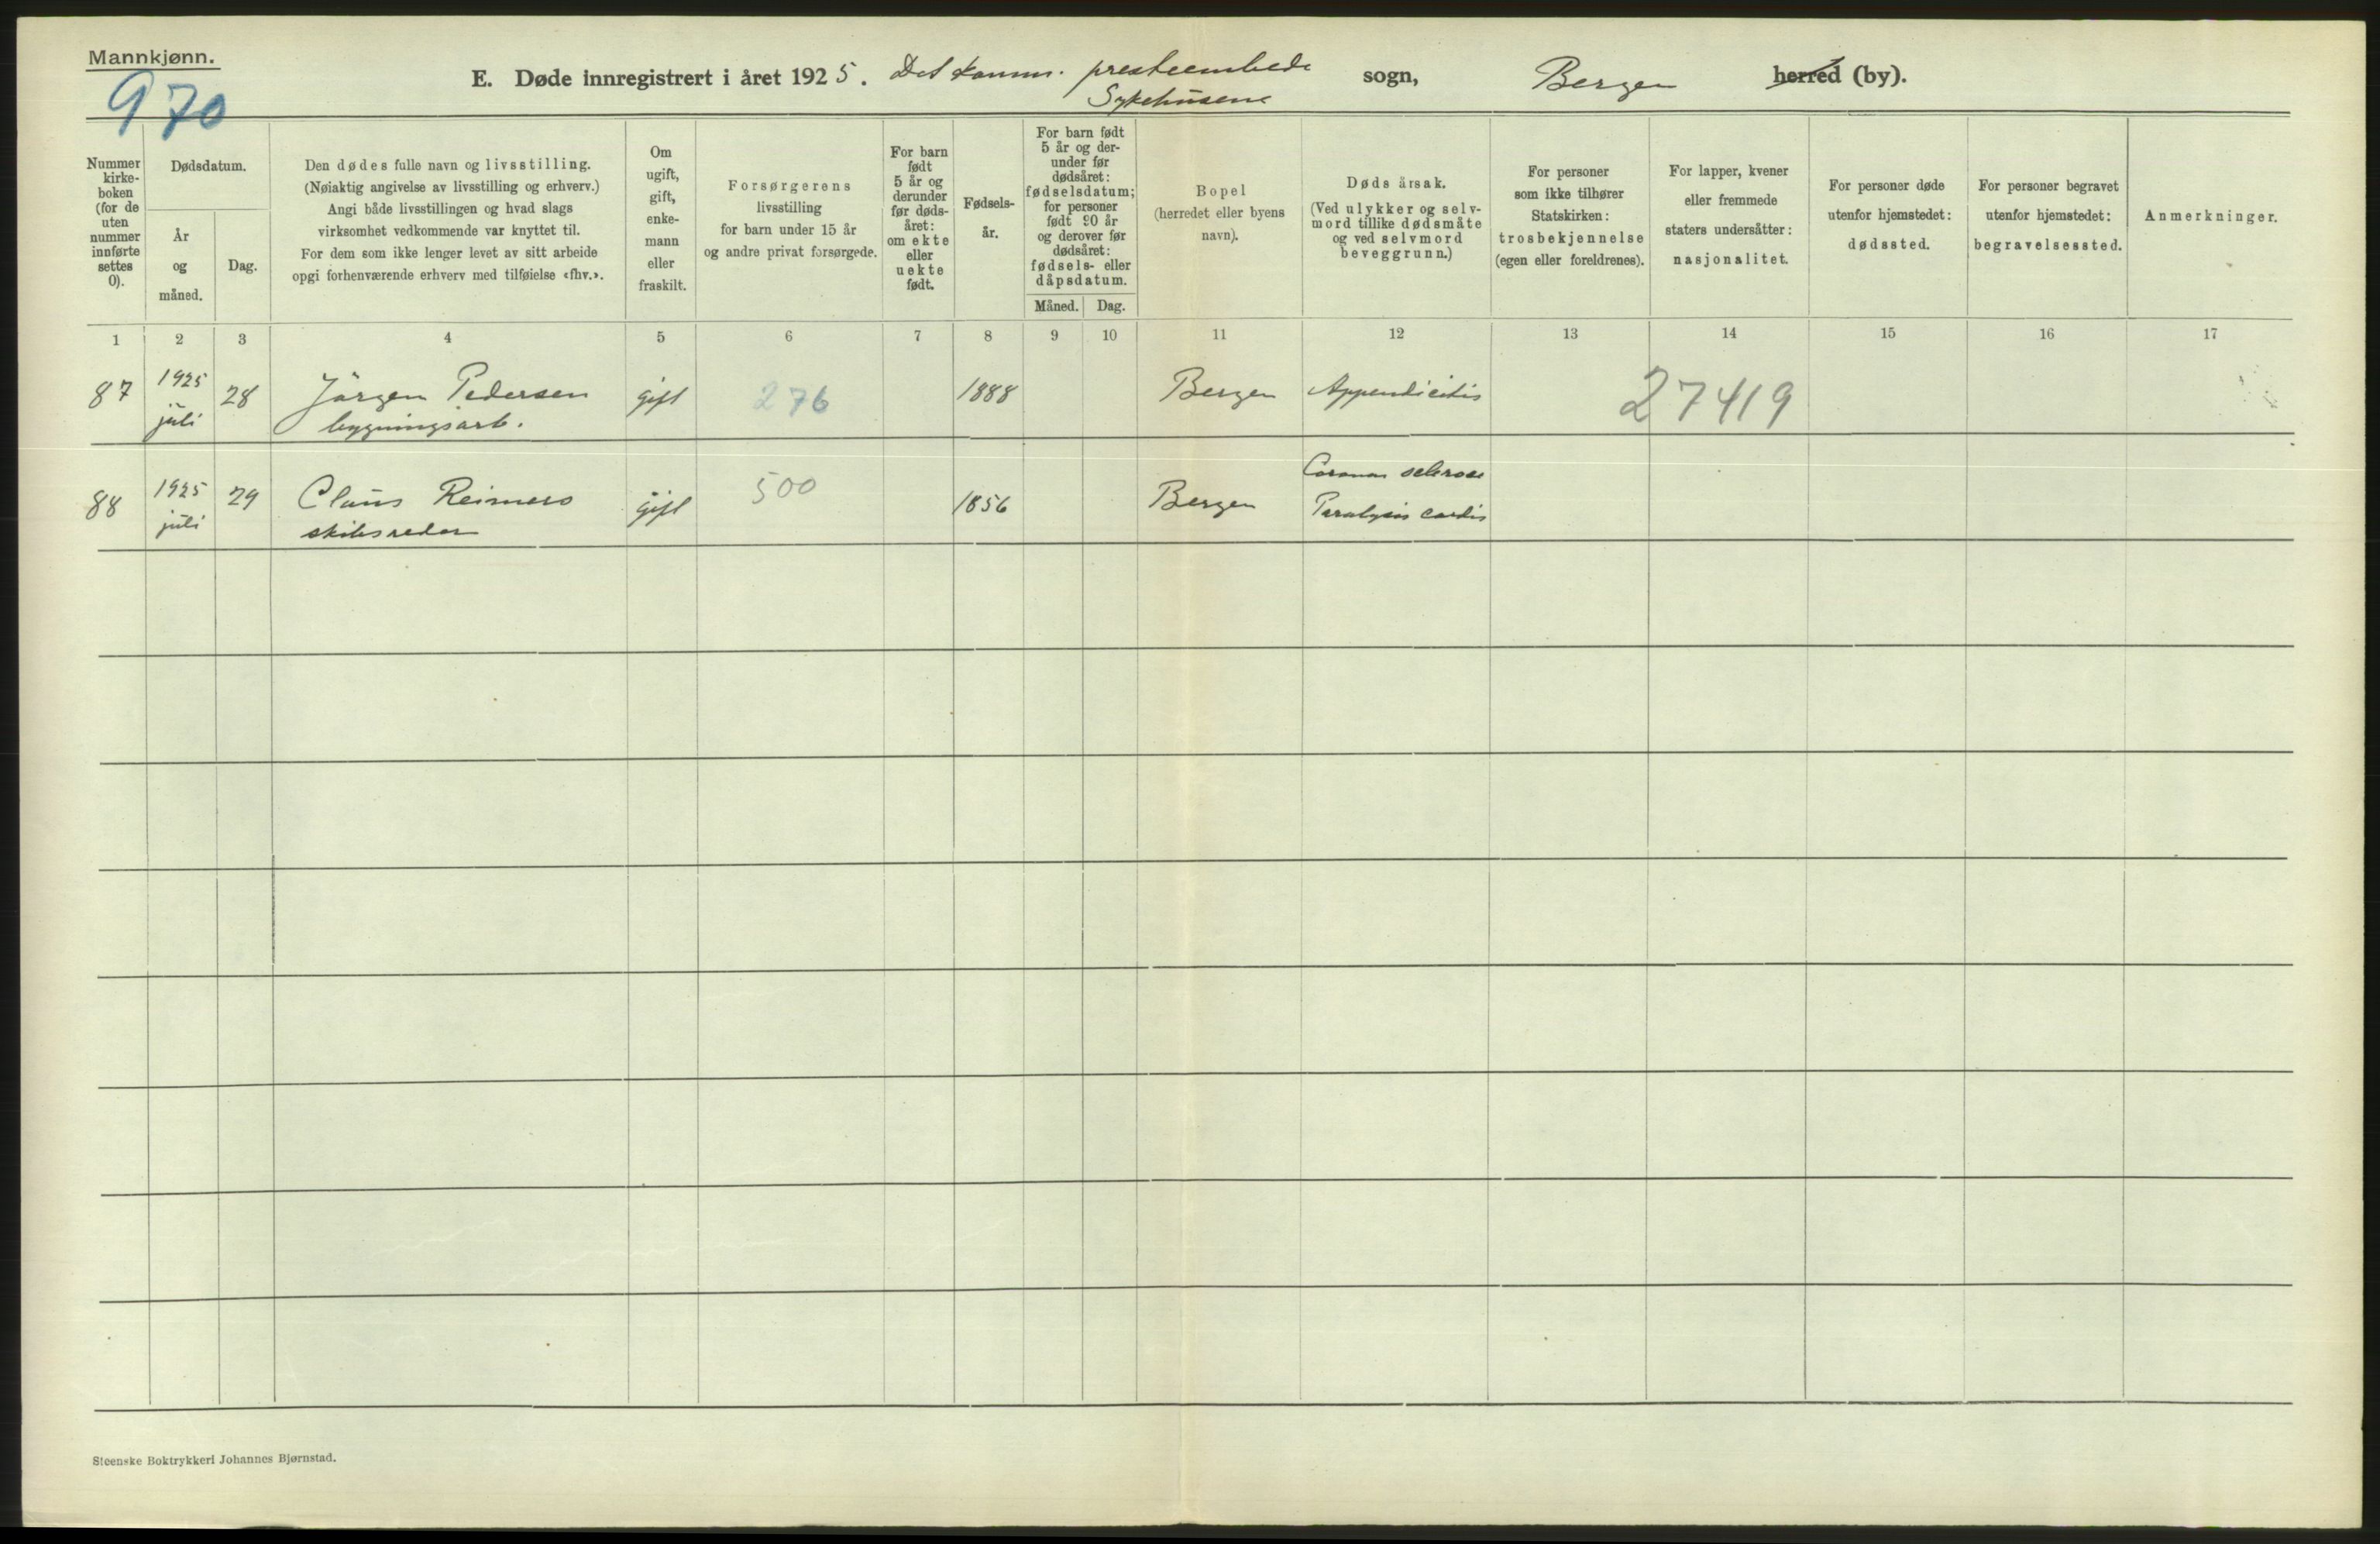 Mannkjønn.
970
E. Døde innregistrert i året 1925. Det komm. presteembede sogn, Bergen herred (by).
Sykehusene
Nummer kirke- boken (for de uten nummer innførte settes 0).
Dødsdatum.
År og måned.
Dag.
Den dødes fulle navn og livsstilling.
(Nøiaktig angivelse av livsstilling og erhverv.)
Angi både livsstillingen og hvad slags
virksomhet vedkommende var knyttet til.
For dem som ikke lenger levet av sitt arbeide
opgi forhenværende erhverv med tilføielse «fhv.».
Om ugift, gift, enke- mann eller fraskilt.
Forsørgerens
livsstilling
for barn under 15 år
og andre privat forsørgede.
For barn født 5 år og derunder før døds- året: om ekte eller uekte født.
Fødsels- år.
For barn født 5 år og der- under før dødsåret: fødselsdatum; for personer født 90 år og derover før dødsåret: fødsels- eller dåpsdatum.
Måned. Dag.
Bopel
(herredet eller byens
navn).
Døds årsak.
(Ved ulykker og selv-
mord tillike dødsmåte
og ved selvmord
beveggrunn.)
For personer
som ikke tilhører
Statskirken:
trosbekjennelse
(egen eller foreldrenes).
For lapper, kvener
eller fremmede
staters undersåtter:
nasjonalitet.
For personer døde
utenfor hjemstedet:
dødssted.
For personer begravet
utenfor hjemstedet:
begravelsessted.
Anmerkninger.
1 2 3 4 5 6 7 8 9 10 11 12 13 14 15 16 17
87 1925 juli 28 Jörgen Pedersen gift 276 1888 Bergen Appendicitis 27419
bygningsarb.
88 1925 juli 29 Claus Reimers gift 500 1856 Bergen Coronar sclerose
skibsreder Paralysis cordis
Steenske Boktrykkeri Johannes Bjørnstad.